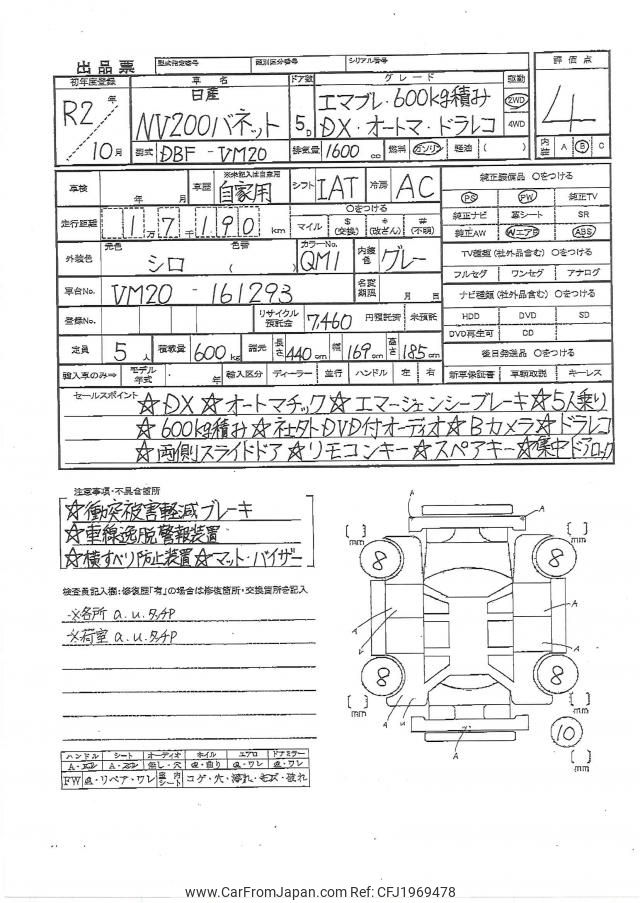 出品票 型式指定番号 類別区分番号 シリアル番号
初年度登録 車名 ドア数 グレード 駆動 評価点
R2年 日産 エマブレ・600kg積み 2WD 4
10月 NV200バネット 5D DX・オートマ・ドラレコ 4WD
型式 DBF-VM20 排気量 1600 cc 燃料 ガソリン 軽油 ( ) 内装 A B C
車検 年 月 車歴 ※未記入は自家用 自家用 シフト IAT 冷房 AC
純正装備品 ○をつける
PS PW 純正TV
走行距離 1万7千190km ○をつける マイル $(交換) *(改ざん) #(不明)
純正ナビ 革シート SR
純正AW WエアB ABS
外装色 元色 シロ 色替 ( ) カラーNo. QM1 内装色 グレー
TV種類(社外品含む) ○をつける
フルセグ ワンセグ アナログ
車台No. VM20-161293 名変期限 月 日
ナビ種類(社外品含む) ○をつける
登録No. リサイクル預託金 7,460 円預託済 未預託
HDD DVD SD
DVD再生可 CD
定員 5人 積載量 600kg 諸元 長さ 440cm 幅 169cm 高さ 185cm
後日発送品 ○をつける
輸入車のみ⇒ モデル年式 年 輸入区分 ディーラー 並行 ハンドル 左 右 新車保証書 車輌取説 キーレス
セールスポイント ☆DX☆オートマチック☆エマージェンシーブレーキ☆5人乗り
☆600kg積み☆社外DVD付オーディオ☆Bカメラ☆ドラレコ
☆両側スライドドア☆リモコンキー☆スペアキー☆集中ドアロック
注意事項・不具合箇所
☆衝突被害軽減ブレーキ
☆車線逸脱警報装置
☆横すべり防止装置☆マット・バイザー
検査員記入欄:修復歴「有」の場合は修復箇所・交換箇所を記入
※各所 a.u.タッチP
※荷室 a.u.タッチP
A A
[ ]mm 8 8 [ ]mm
A A
A
[ ]mm 8 8 [ ]mm
A u A
10
ハンドル シート オーディオ ホイル エアロ ドアミラー
FW 点・リペア・ワレ 室内シート コゲ・穴・汚れ・キズ・破れ
www.CarFromJapan.com Ref: CFJ1969478